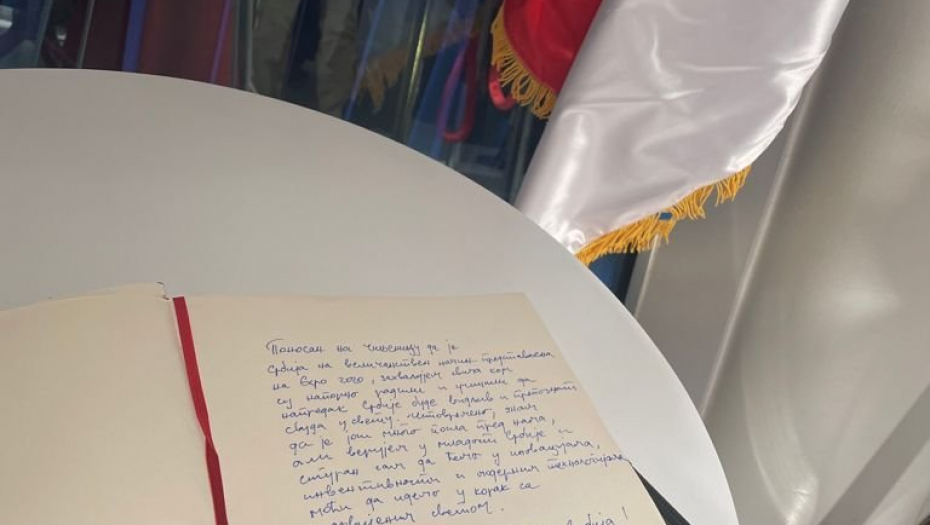 Поносан на чињеницу да је
Србија на величанствен начин представљена
на Експо 2020, захваљујем свима који
су напорно радили и учинили да
напредак Србије буде видљив и препознат
свуда у свету. Истовремено, знам
да је још много посла пред нама,
али верујем у младост Србије и
сигуран сам да ћемо у иновацијама,
инвентивности и модерним технологијама
моћи да идемо у корак са
развијеним светом.
Србија!